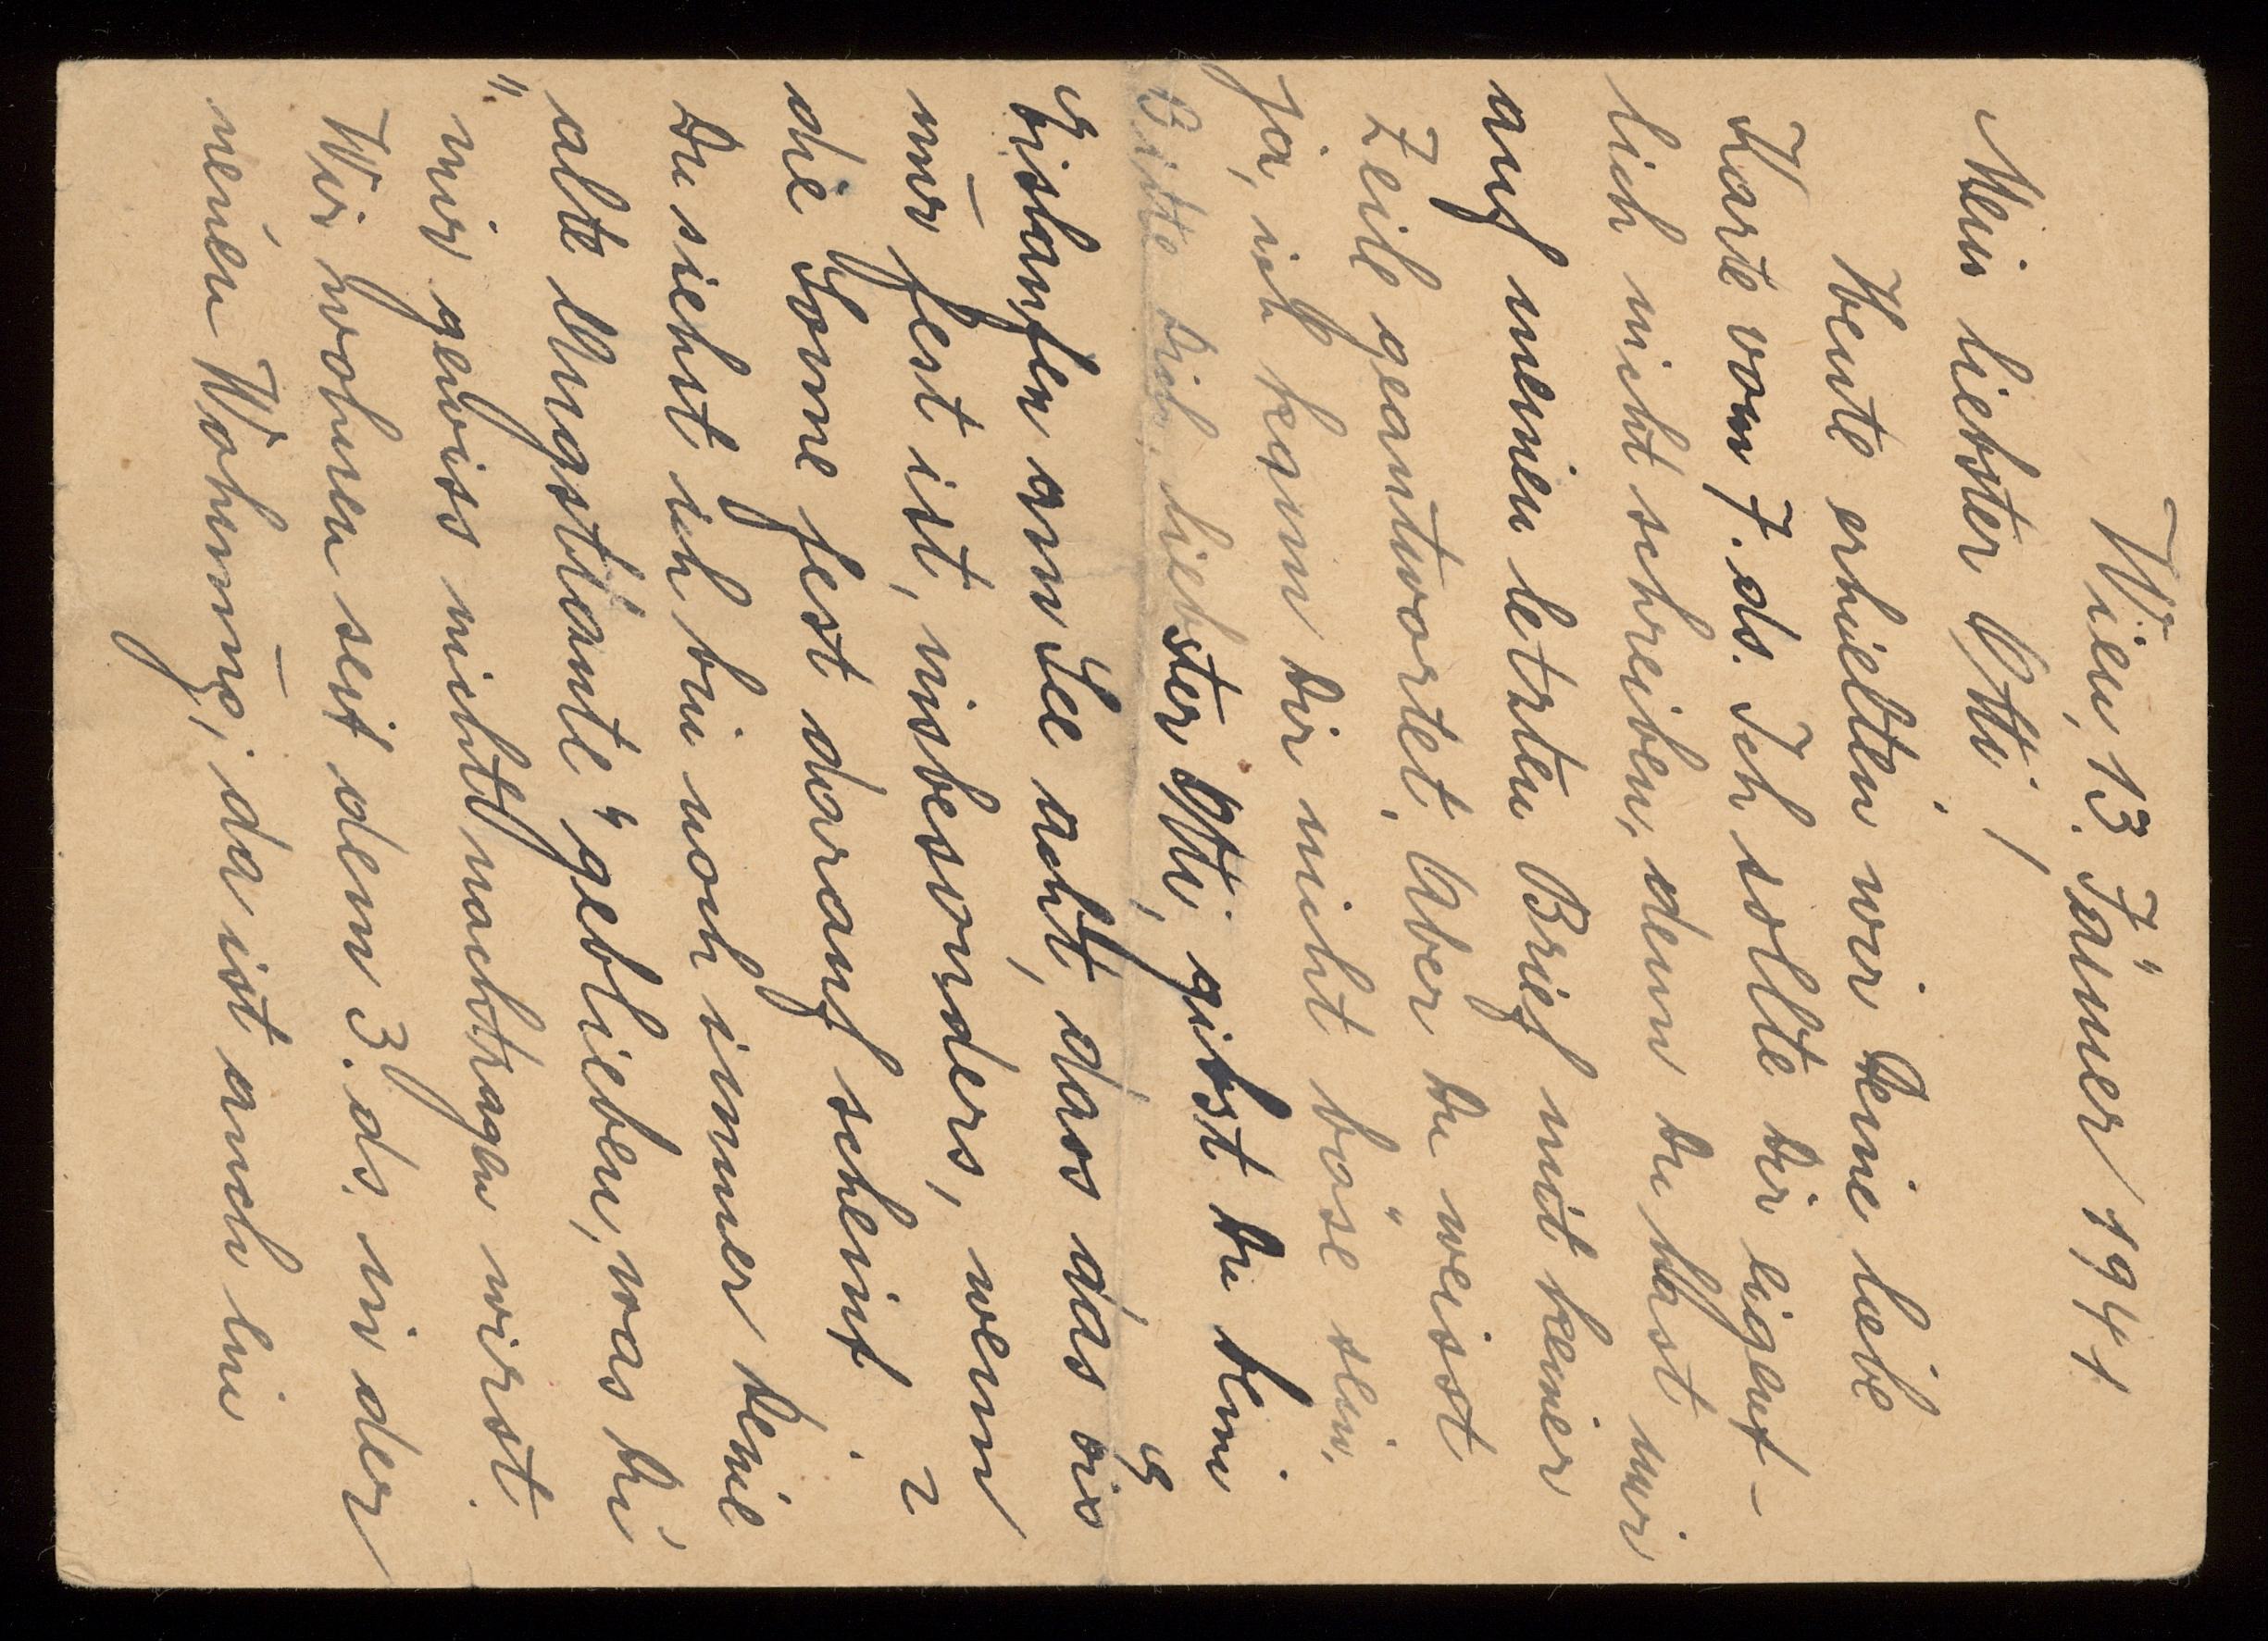 Wien, 13. Jänner 1941
Mein liebster Otti!
Heute erhielten wir Deine liebe
Karte vom 7. ds. Ich sollte dir eigent-
lich nicht schreiben, denn du hast mir
auf meinen letzten Brief mit keiner
Zeile geantwortet. Aber du weisst
ja, ich kann dir nicht böse sein.
Bitte dich, liebster Otti, gibst du beim
Eislaufen am See acht, dass das Eis
nur fest ist, insbesonders, wenn
die Sonne fest darauf scheint?
Du siehst ich bin noch immer deine
„alte Angsttante" geblieben, was du
mir gewiss nicht nachtragen wirst.
Wir wohnen seit dem 3. ds. in der
neuen Wohnung; da ist auch ein